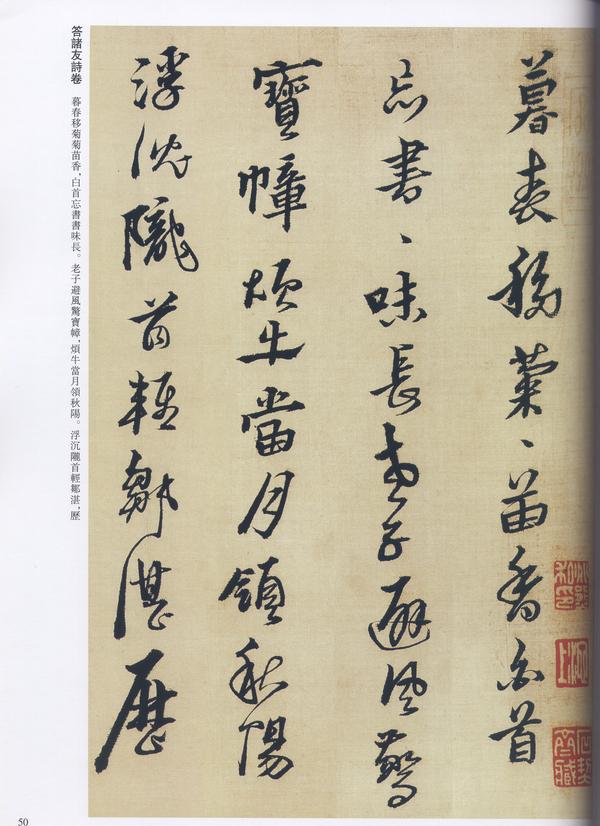 暮春移菊、苗香白首
忘書、味長老子避風驚
寶幛煩牛當月領秋陽
浮沈隴首輕鄒湛歷
答諸友詩卷 暮春移菊菊苗香，白首忘書書味長。老子避風驚寶幛，煩牛當月領秋陽。浮沉隴首輕鄒湛，歷
50